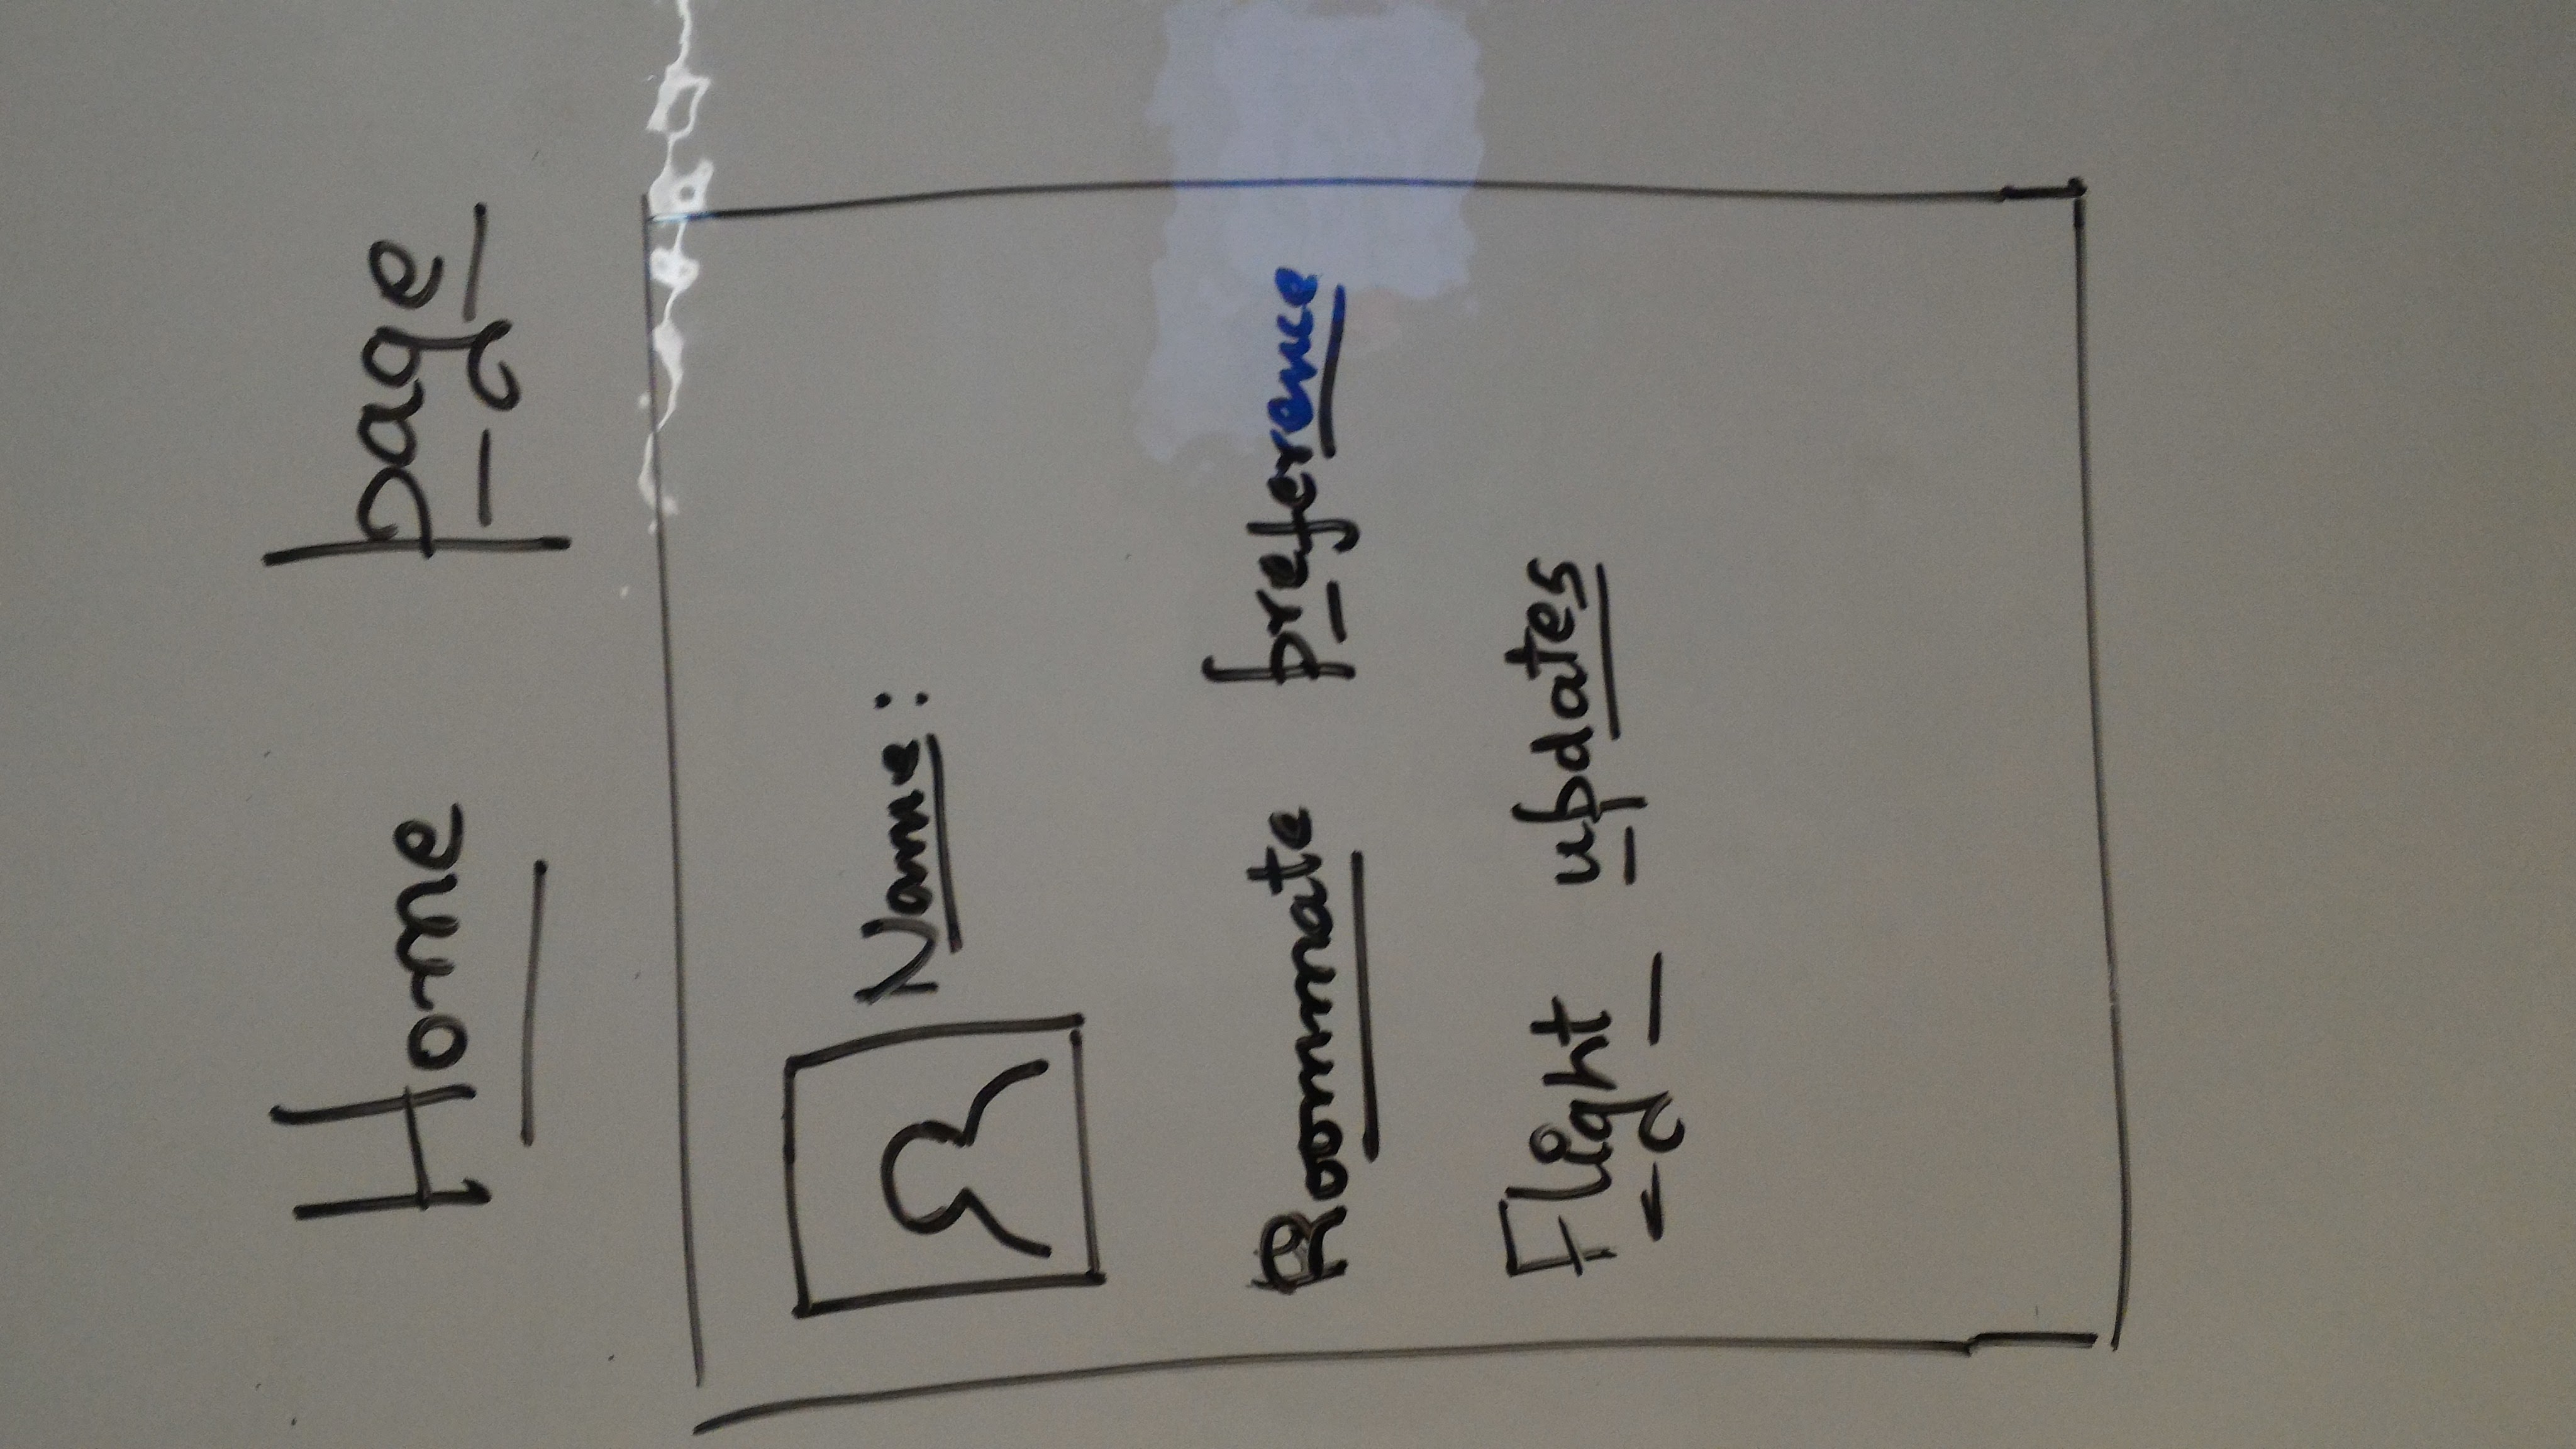 Home page
Name:
Roommate preference
Flight updates